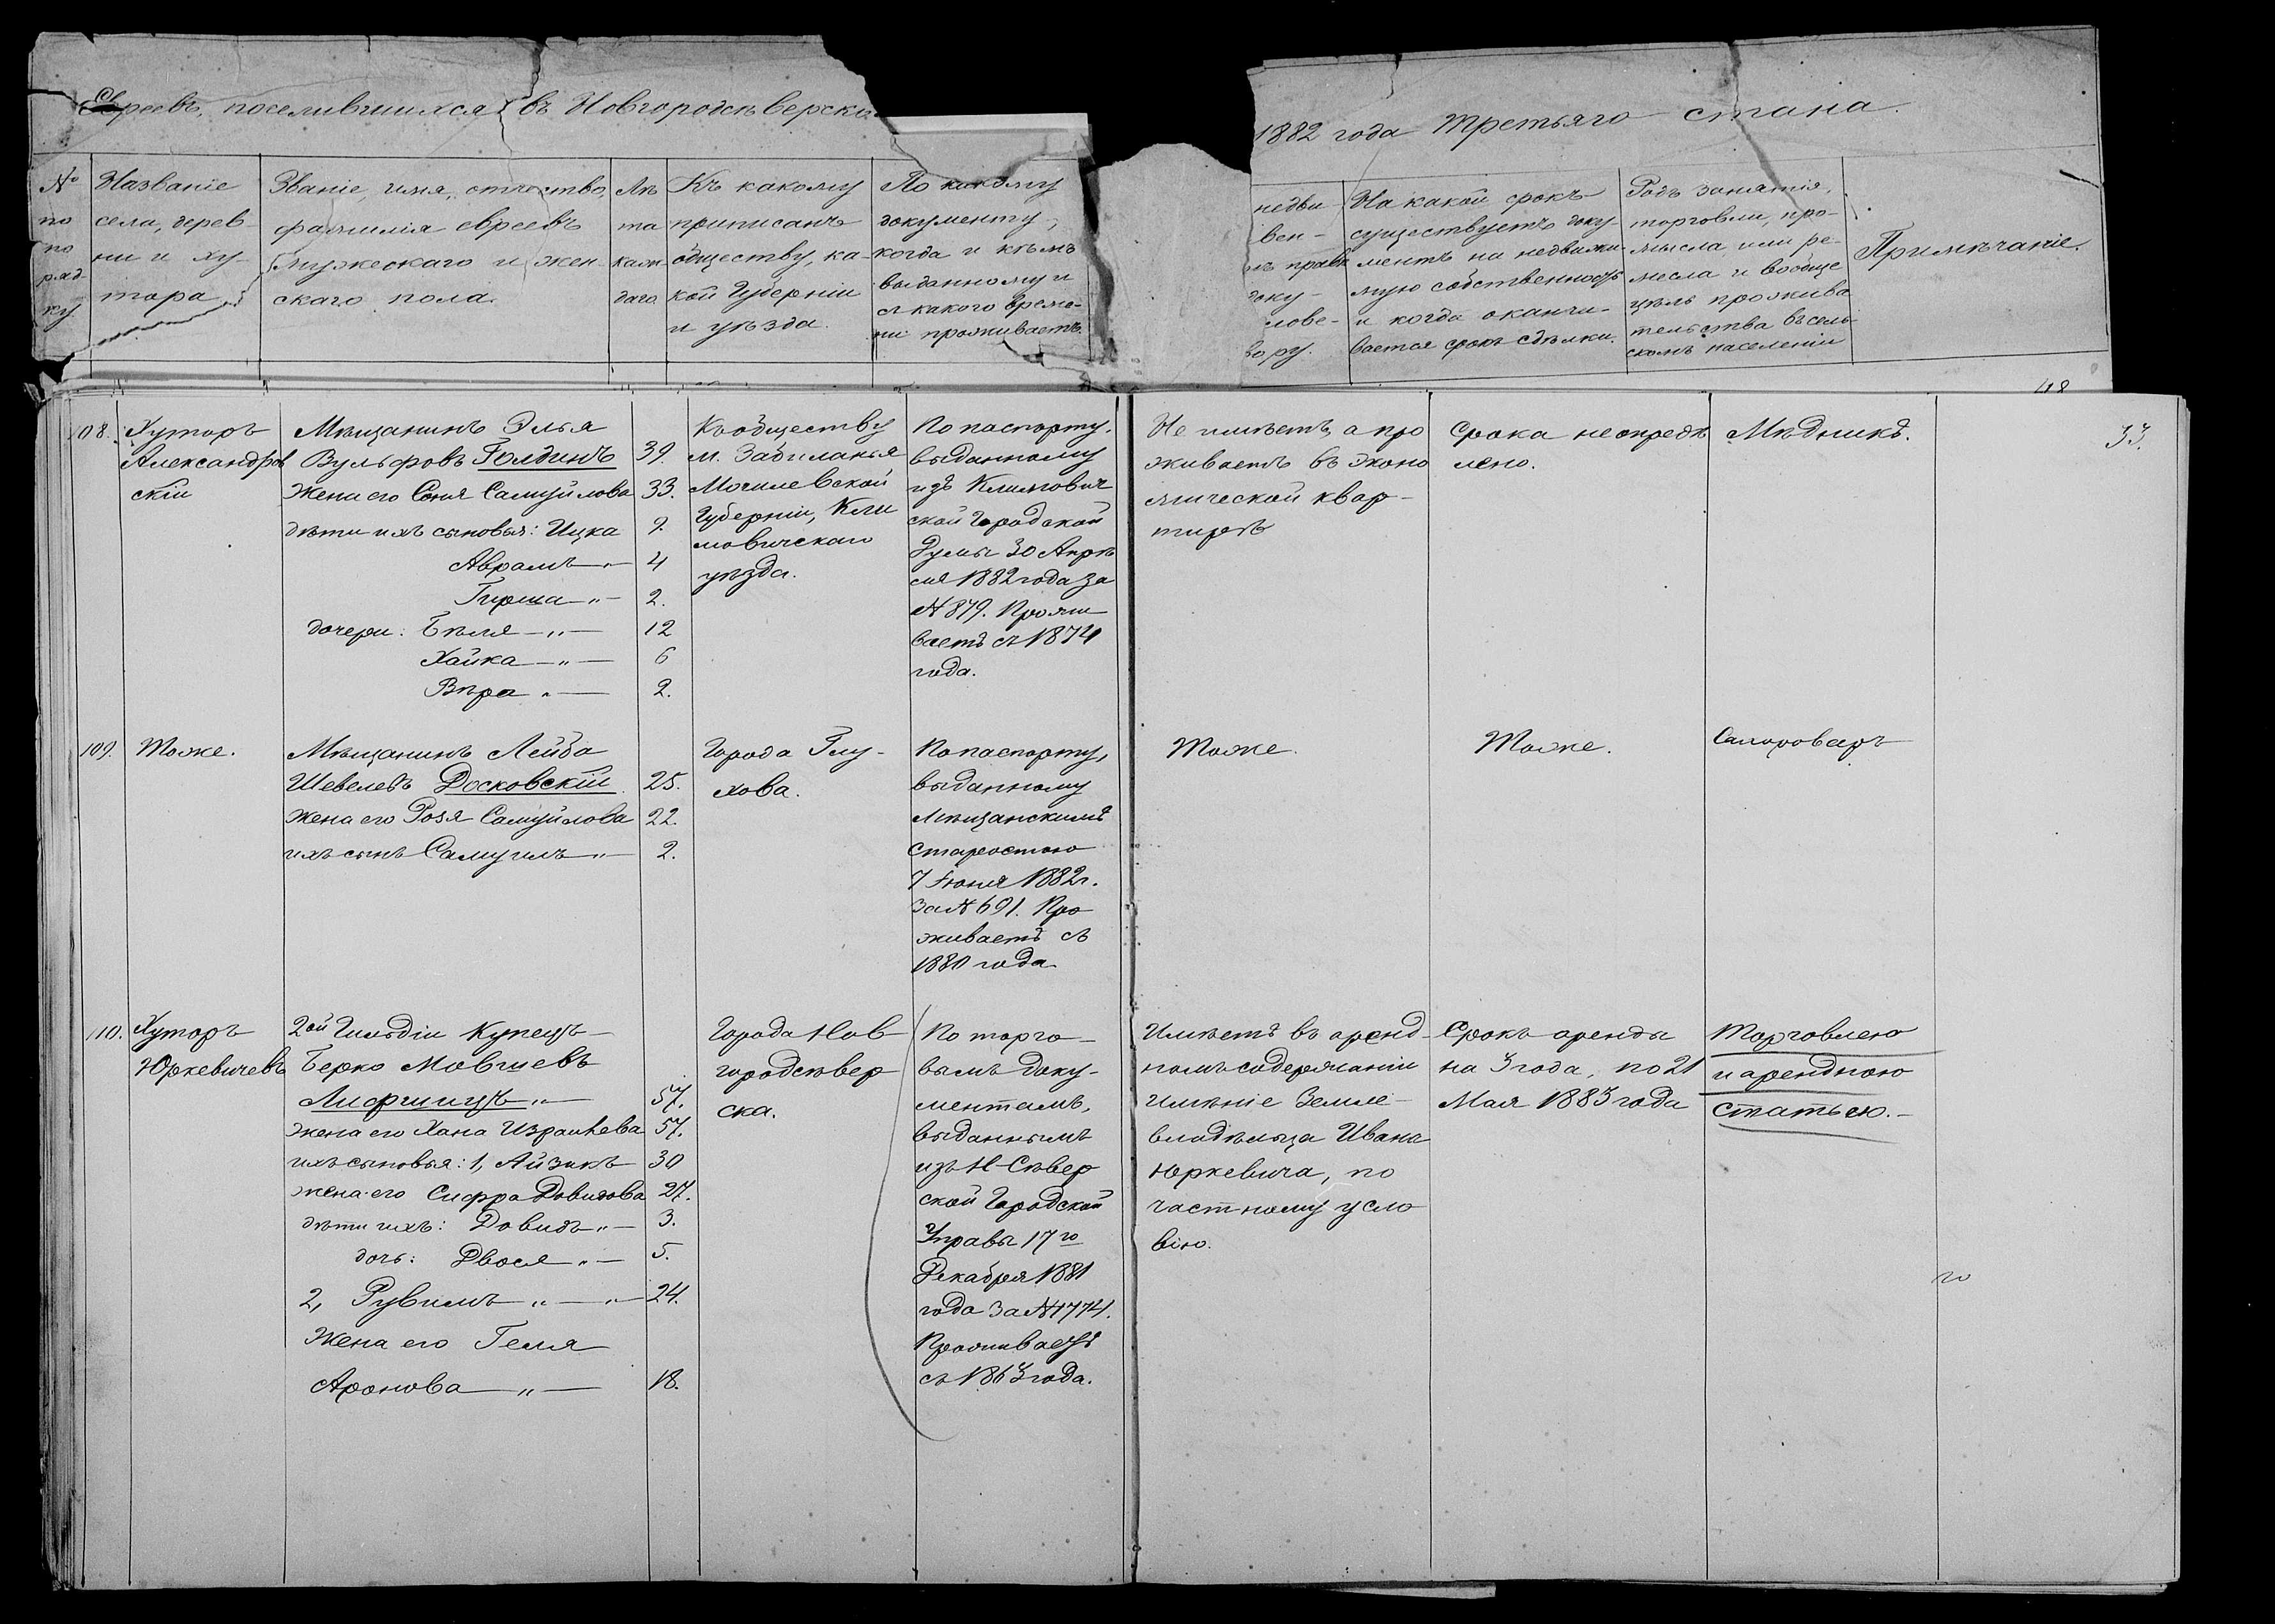 Евреевъ, поселившихся въ Новгородсѣверско
1882 года третьяго стана.
№ по по ряд- ку
Названіе
села, дерев-
ни и ху-
тора
Званіе, имя, отчество,
фамилія евреевъ
мужескаго и жен-
скаго пола.
Лѣ
та
кажд-
даго
Къ какому
приписанъ
обществу, ка-
кой Губерніи
и уѣзда.
По какому
документу,
когда и кѣмъ
выданному и
съ какого време-
ни проживаетъ.
недви-
вен-
правѣ
доку-
лове-
вору.
На какой срокъ
существуетъ доку-
ментъ на недвижи-
мую собственность
и когда оканчи-
вается срокъ сдѣлки.
Родъ занятія,
торговли, про-
мысла или ре-
месла и вообще
цѣль прожива
тельства въ сель-
скомъ населеніи
Примѣчаніе.
33.
108.
Хуторъ
Александров
скій
Мѣщанинъ Элья
Вульфовъ Голдинъ 39.
Жена его Соня Самуйлова 33.
дѣти ихъ сыновья: Ицка 9.
Аврамъ — 4
Гирша — " — 2.
дочери: Бѣля — " — 12
Хайка — " — 6
Вѣра " — 2.
Къ обществу
м. Забиланья
Могилевской
Губерніи, Кли
мовичскаго
уѣзда.
По паспорту,
выданному
изъ Климович
ской Городской
Думы 30 Апрѣ
ля 1882 года за
№ 879. Прожи
ваетъ съ 1874
года.
Не имѣетъ, а про
живаетъ въ эконо
мической квар-
тирѣ
Срока не опредѣ
лено.
Мѣдникъ.
109.
Тоже.
Мѣщанинъ Лейба
Шевелевъ Досковскій 25.
Жена его Розя Самуйлова 22.
ихъ сынъ Самуилъ " — 2.
Города Глу-
хова.
По паспорту,
выданному
Мѣщанскимъ
Старостою
7 Іюня 1882 г.
за № 691. Про
живаетъ съ
1880 года.
Тоже.
Тоже.
Самоваръ
110.
Хуторъ
Юркевичевъ
2ой Гильдіи Купецъ
Берко Мовшевъ
Лифшицъ " — 57.
Жена его Хана Израилева 57.
ихъ сыновья: 1, Айзикъ — 30
жена его Сифра Довидова 27.
дѣти ихъ: Довидъ " — 3.
дочь: Двося " — 5.
2, Рувимъ " — " — 24.
Жена его Геля
Аронова — " — 18.
Города Нов
городсѣвер
ска.
По торго-
вымъ доку-
ментамъ,
выданнымъ
изъ Н-Сѣвер
ской Городской
Управы 17го
Декабря 1881
года за № 1774.
Проживаетъ
съ 1863 года.
Имѣетъ въ аренд-
номъ содержаніи
имѣніе Земле-
владѣльца Ивана
Юркевича, по
частному усло
вію.
Срокъ аренды
на 3 года, по 21
Мая 1883 года
Торговлею
и арендною
статьею. -